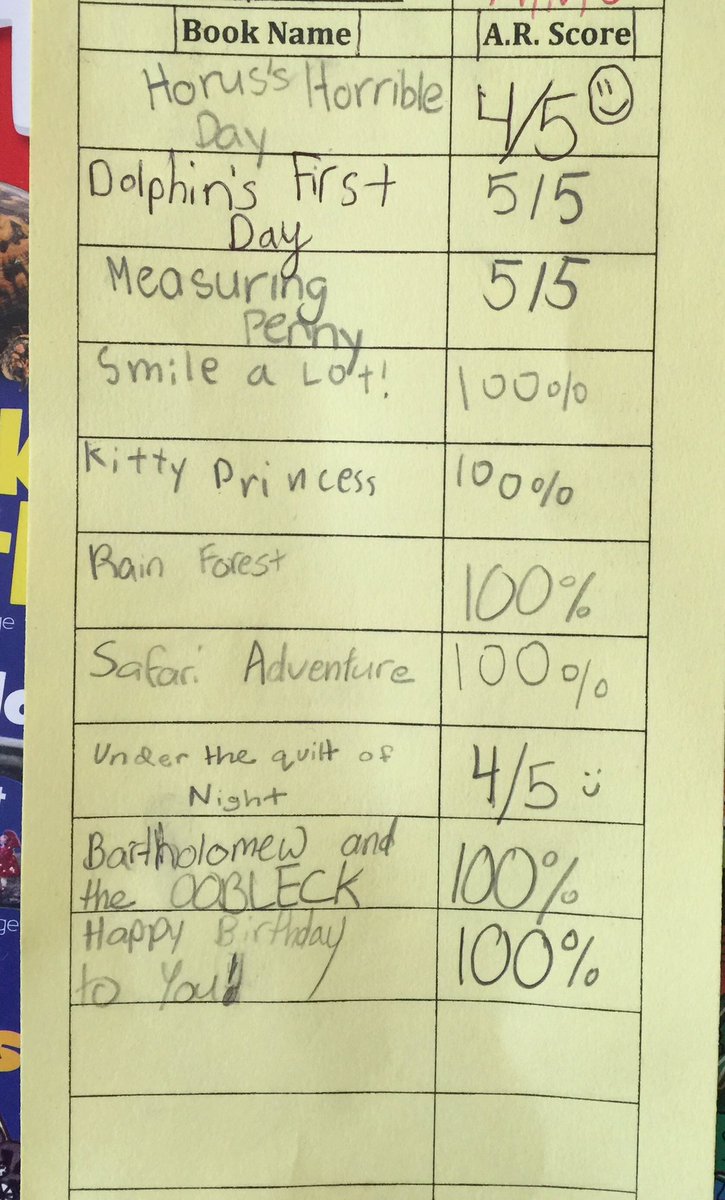 Book Name A.R. Score
Horus's Horrible 4/5
Day
Dolphin's First 5/5
Day
Measuring 5/5
Penny
Smile a Lot! 100%
Kitty Princess 100%
Rain Forest 100%
Safari Adventure 100%
Under the quilt of 4/5
Night
Bartholomew and 100%
the OOBLECK
Happy Birthday 100%
to You!